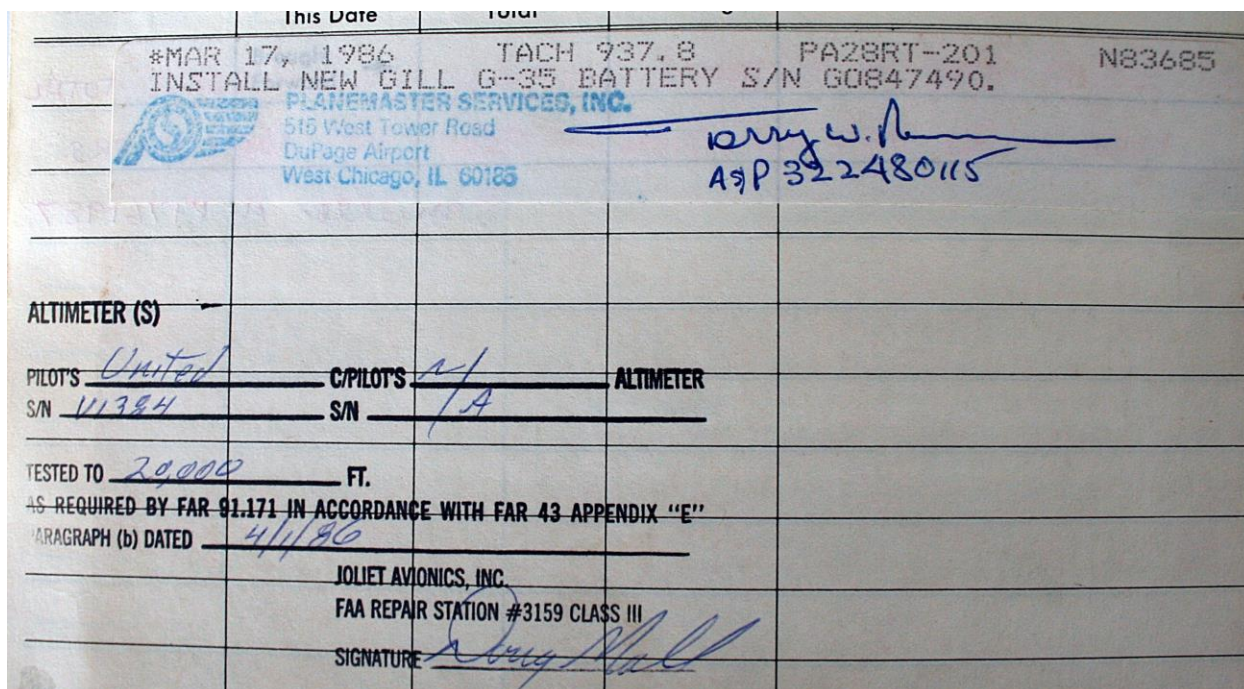 This Date Total
*MAR 17, 1986 TACH 937.8 PA28RT-201 N83685
INSTALL NEW GILL G-35 BATTERY S/N G0847490.
PLANEMASTER SERVICES, INC.
515 West Tower Road
DuPage Airport
West Chicago, IL 60185
A&P 322480115
ALTIMETER (S)
PILOT'S United C/PILOT'S N/ ALTIMETER
S/N V1384 S/N A
TESTED TO 20,000 FT.
AS REQUIRED BY FAR 91.171 IN ACCORDANCE WITH FAR 43 APPENDIX "E"
PARAGRAPH (b) DATED 4/1/86
JOLIET AVIONICS, INC.
FAA REPAIR STATION #3159 CLASS III
SIGNATURE Doug